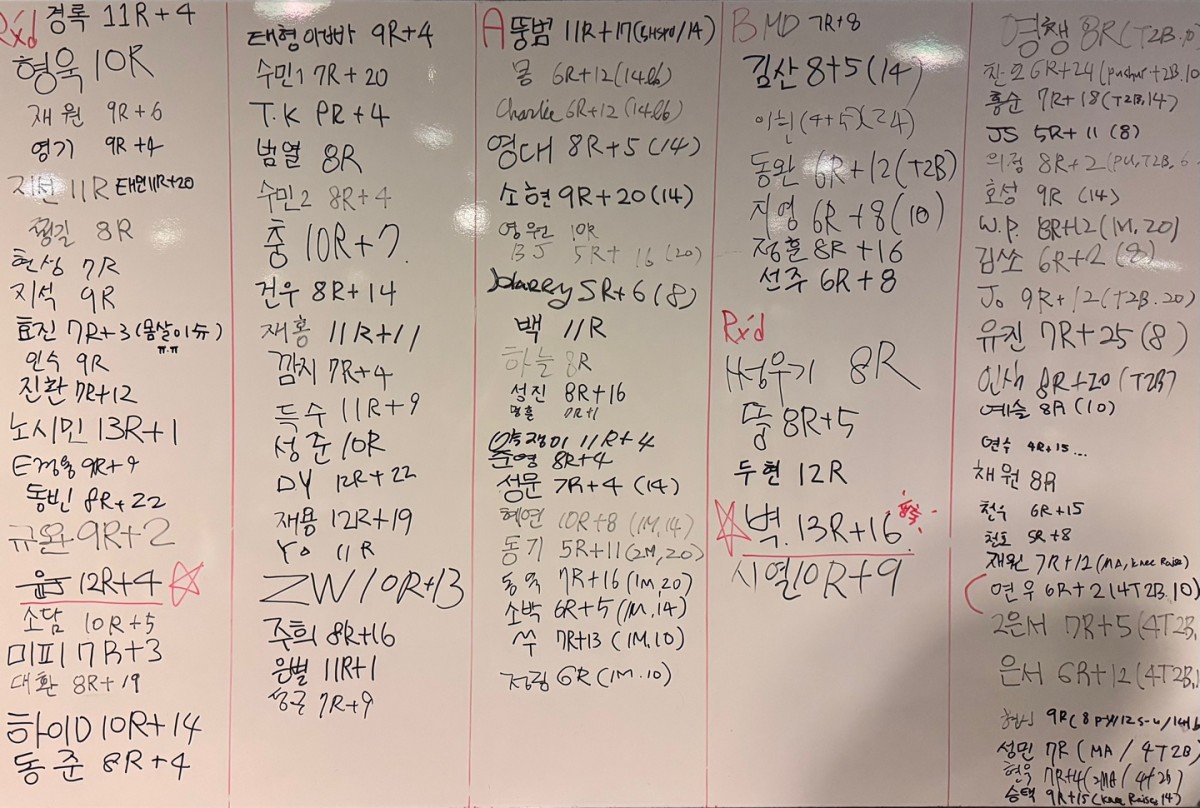 Rx'd
경록 11R+4
형욱 10R
재원 9R+6
영기 9R+4
지선 11R 태원 11R+20
쩡길 8R
현상 7R
지석 9R
효진 7R+3 (몸살이슈)
ㅠ.ㅠ
인수 9R
진환 7R+12
노시민 13R+1
9R+9
동빈 8R+22
규완 9R+2
12R+4
소담 10R+5
미피 7R+3
대환 8R+19
하이D 10R+14
동준 8R+4
태형아빠 9R+4
수민1 7R+20
T.K 8R+4
범열 8R
수민2 8R+4
충 10R+7
건우 8R+14
재홍 11R+11
깜지 7R+4
득수 11R+9
성준 10R
DY 12R+22
재용 12R+19
Yo 11R
ZW 10R+13
주희 8R+16
은별 11R+1
성근 7R+9
A
뚱범 11R+17 (SHSPU/14)
몽 6R+12 (14lb)
Charlie 6R+12 (14lb)
영대 8R+5 (14)
소현 9R+20 (14)
영원 10R
BJ 5R+16 (20)
5R+6 (8)
백 11R
하늘 8R
성진 8R+16
11R+4
준영 8R+4
성문 7R+4 (14)
혜연 10R+8 (1M,14)
동기 5R+11 (2M,20)
동욱 7R+16 (1M,20)
소박 6R+5 (1M,14)
쑤 7R+13 (1M,10)
6R (1M.10)
B
MD 7R+8
김산 8+5 (14)
이헌 (4+5)(24)
동완 6R+12 (T2B)
지영 6R+8 (10)
정훈 8R+16
선주 6R+8
Rx'd
8R
뚱 8R+5
두현 12R
벽. 13R+16
시열 10R+9
영챙 8R (T2B.10
6R+24 (pushup+T2B.10
홍순 7R+18 (T2B,14)
JS 5R+11 (8)
의정 8R+2 (PU,T2B,6
호성 9R (14)
W.P. 8R+12 (1M, 20)
김쏘 6R+2 (8)
Jo 9R+12 (T2B.20)
유진 7R+25 (8)
인성 8R+20 (T2B)
예슬 8R (10)
연수 4R+15...
채원 8R
천수 6R+15
천토 5R+8
재원 7R+12 (MA, knee Raise)
연우 6R+2 (4T2B.10)
2은서 7R+5 (4T2B,
은서 6R+12 (4T2B,
성민 7R (MA / 4T2B)
현욱 7R+4
승택 9R+15 (knee Raise 14)